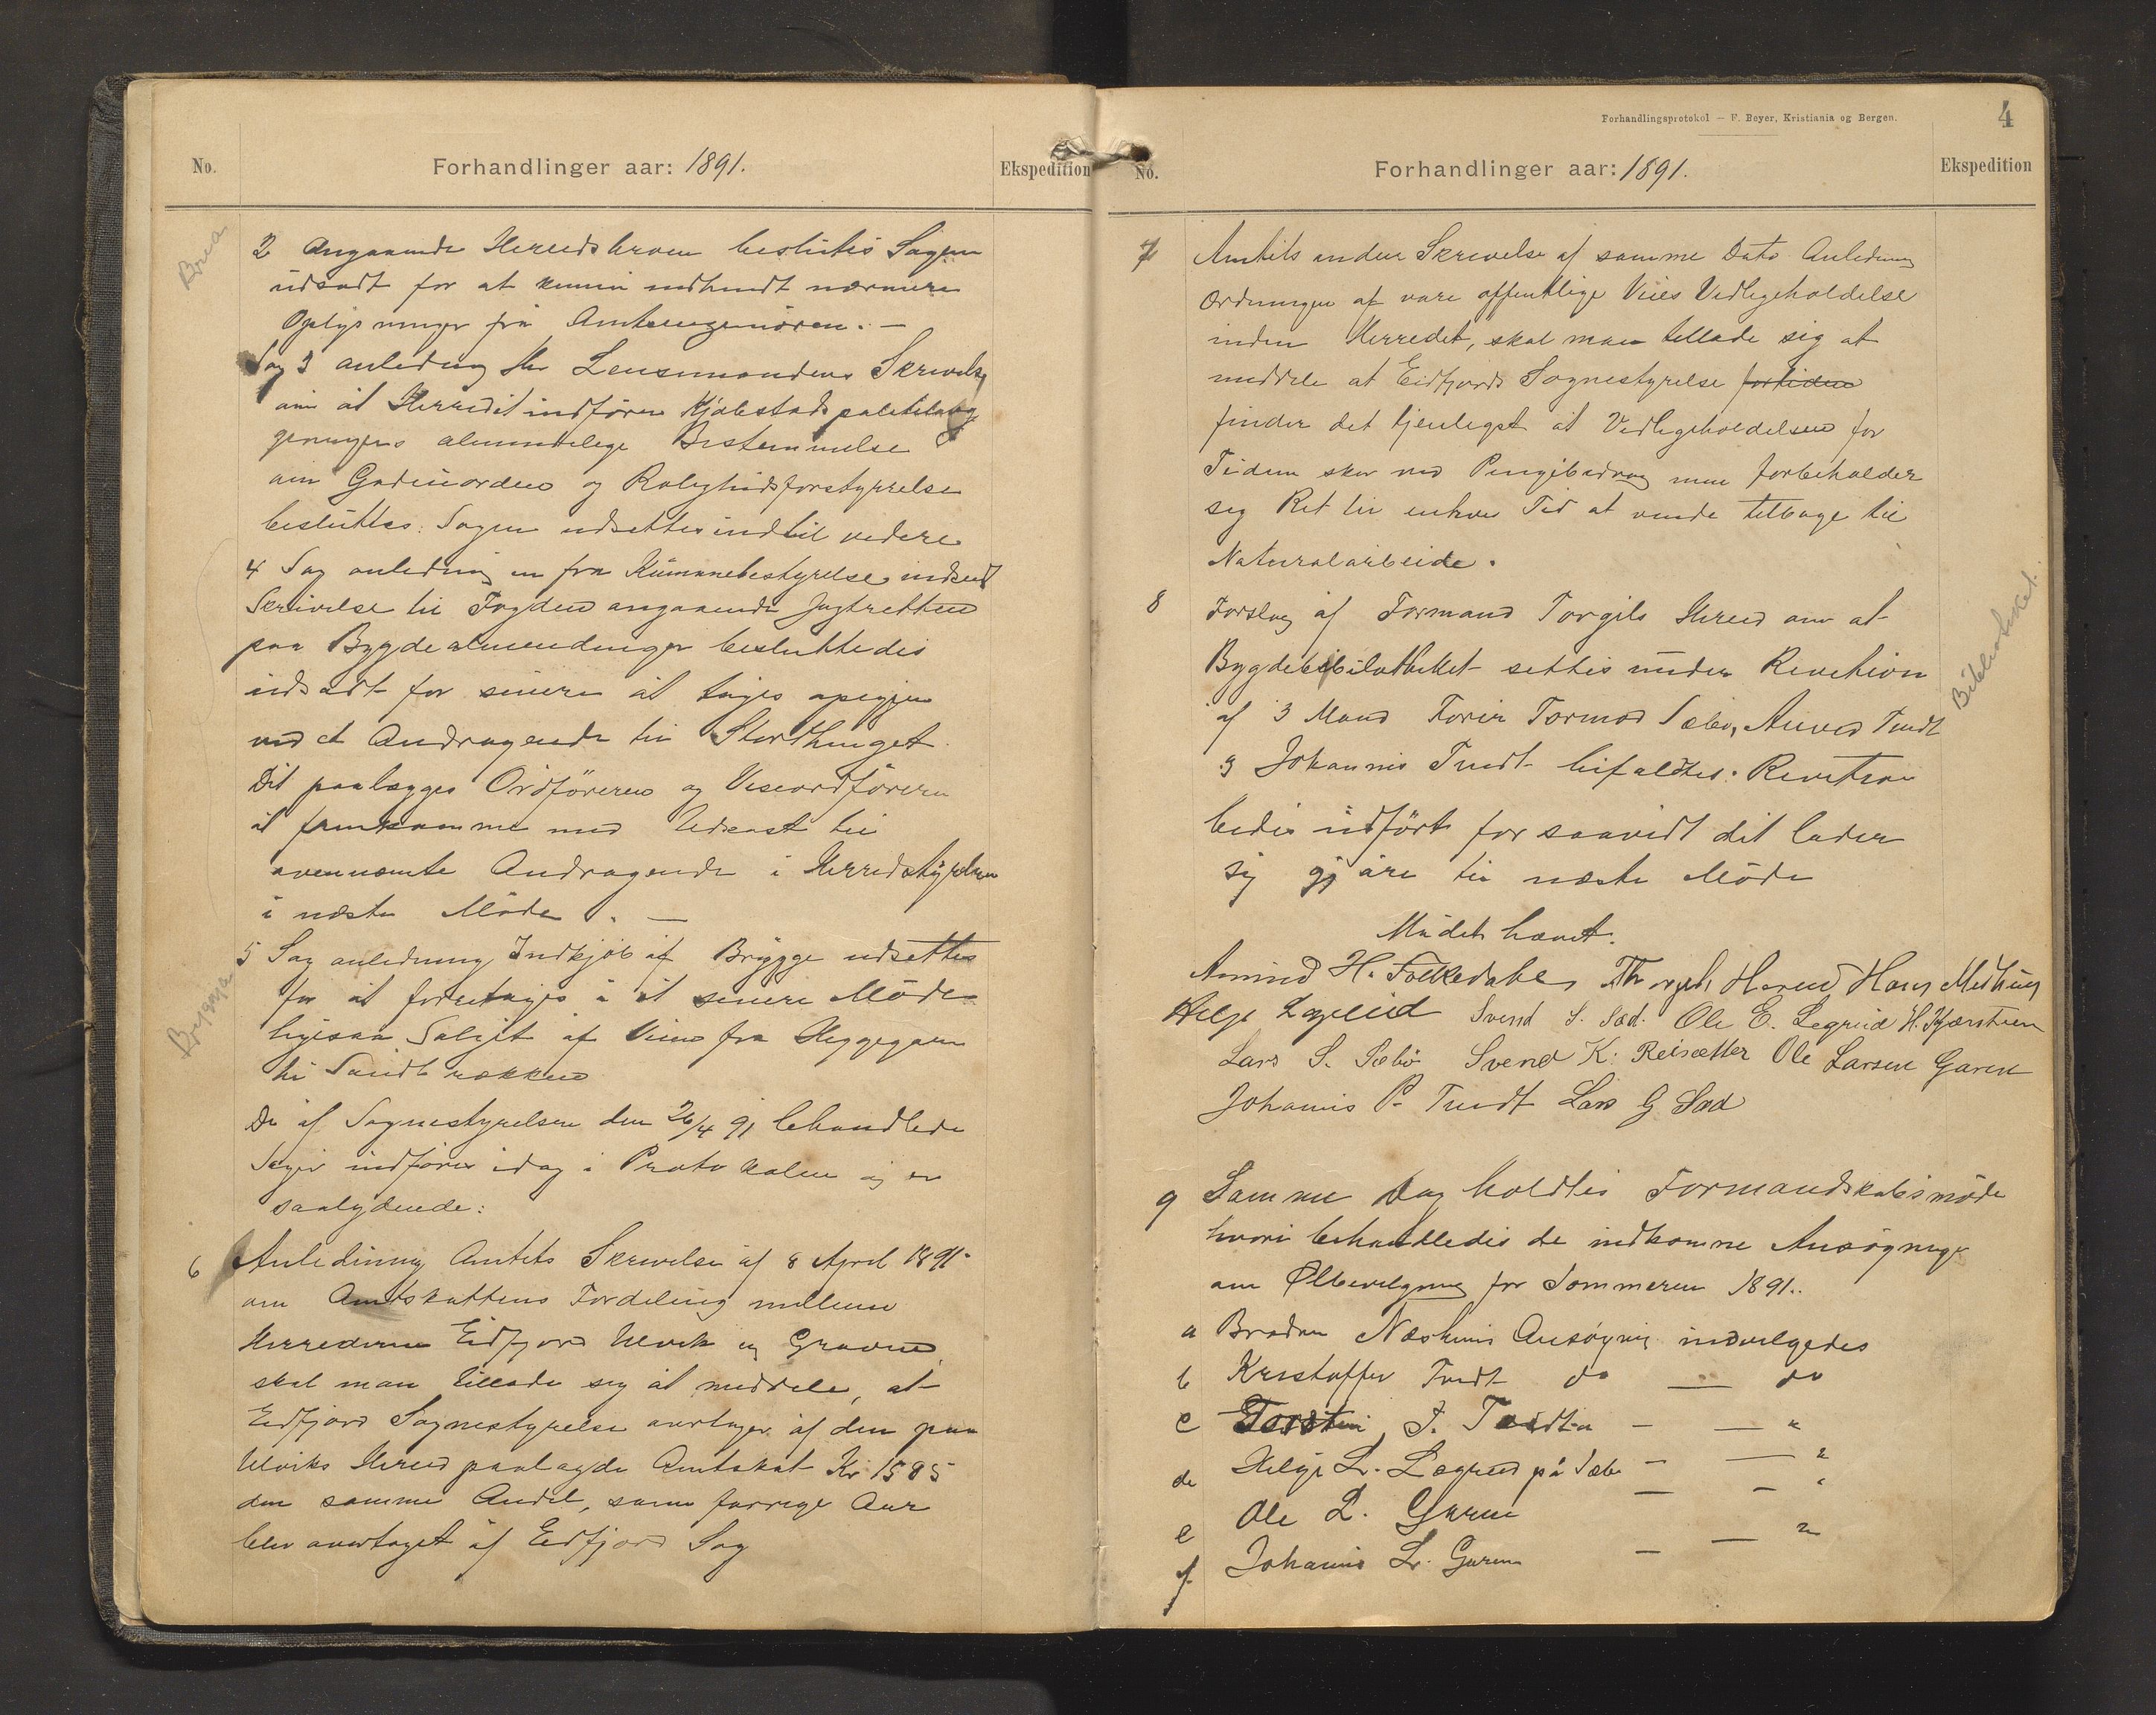 No.
Forhandlinger aar: 1891.
Ekspedition
Brua
2 Angaaende Herredsbroen beslutes Sagen
udsadt for at kunne indhendt nærmere
Oplysninger fra Amtsingeniøren. —
Sag 3 anledning Hr Lensmandens Skrivelse
om at Herredet indfører Kjøbstads
almindelige Bestemmelse
om Gadeuorden og Rolighedsforstyrrelse
besluttes: Sagen udsettes indtil videre
4 Sag anledning en fra Kummunebestyrelse indsendt
Skrivelse til Fogden angaaende Jagtretten
paa Bygdealmendinger besluttedes
udsadt for senere at tages opigjen
med et Andragende til Storthinget.
Det paalægges Ordføreren og Viseordføreren
at fremkomme med Udkast til
ovennæmte Andragende i Herredstyrelsen
i næste Møde. —
Bryggja
5 Sag anledning Indkjøb af Brygge udsettes
for at foretages i et senere Møde
ligesaa Salget af fra
til
De af Sognestyrelsen den 26/4 91 behandlede
Sager indføres idag i Protokolen og er
saalydende:
6 Anledning Amtets Skrivelse af 8 April 1891
om Amtskattens Fordeling mellem
Herrederne Eidfjord Ulvik og Graven,
skal man tillade sig at meddele, at
Eidfjord Sognestyrelse overtager af den paa
Ulviks Herred paalagde Amtskat Kr 1585
den samme Andel, som forrige Aar
blev overtaget af Eidfjord Sog
Forhandlingsprotokol — F. Beyer, Kristiania og Bergen.
4
No.
Forhandlinger aar: 1891.
Ekspedition
7 Amtets anden Skrivelse af samme Dato Anledning
Ordningen af vore offentlige Veies Vedligeholdelse
inden Herredet, skal man tillade sig at
meddele at Eidfjords Sognestyrelse fortiden
finder det tjenligst at Vedligeholdelsen for
Tiden sker ved Pengebidrag men forbeholder
sig Ret til enhver Tid at vende tilbage til
Naturalarbeide.
Biblioteket.
8 Forslag af Formand Torgils Hereid om at
Bygdebibilotheket settes under Revition
af 3 Mand Tormod Sæbø, Tveidt
og Johannis Tveidt bifaldtes. Revition
bedes udført for saavidt det lader
sig gjøre til næste Møde
Mødet hævet.
Amund H. Folkedahl, Thorgils Hereid Hans Methus
Helge Legreid Svend S. Sæd. Ole E. Legreid H. Kjærstein
Lars S. Sæbø Svend K. Reisætter Ole Larsen Garen
Johannis P. Tveidt Lars G Sæd
9 Samme Dag holdtes Formandskabsmøde
hvori behandledes de indkomne Ansøgninger
om Ølbevilgning for Sommeren 1891..
a Brødre Næsheims Ansøgning indvilgedes
b Kristoffer Tveidt do — do
c Torstein J. Tveidt — — "
de Helge L. Lægreid på Sæbø — — "
e Ole L. Garen — — "
f. Johannis L. Garen — — "